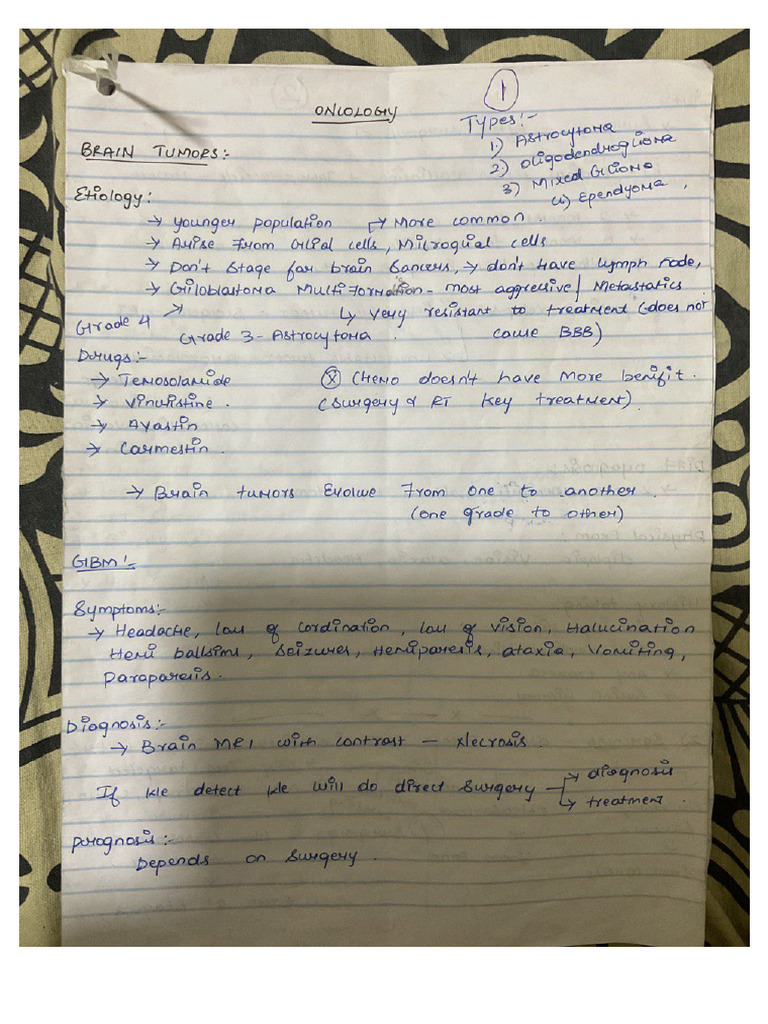 ①
ONCOLOGY
Types:-
1) Astrocytoma
2) Oligodendroglioma
3) Mixed Glioma
4) Ependyoma,
BRAIN TUMORS:-
Etiology:
→ younger population → More common.
→ Arise from Glial cells, Microglial cells
→ Don't stage for brain cancers, → don't have lymph node,
→ Gliloblastoma Multi Formation - most aggresive/ Metastatics
Grade 4
↳ Very resistant to treatment (does not
Grade 3 - Astrocytoma. cause BBB)
Drugs:-
→ Temosolamide ⓧ Chemo doesn't have more benifit.
→ Vincristine. (Surgery & RT key treatment).
→ Avastin
→ Carmestin.
→ Brain tumors evolve from one to another.
(one grade to other)
GBM:-
Symptoms:-
→ Headache, loss of cordination, loss of vision, Halucination
Hemi ballsims, Seizures, Hemiparesis, ataxia, Vomiting,
Paraparesis.
Diagnosis:-
→ Brain MRI with contrast - Necrosis.
If we detect we will do direct surgery → diagnosis
↳ treatment.
Prognosis:-
Depends on Surgery.